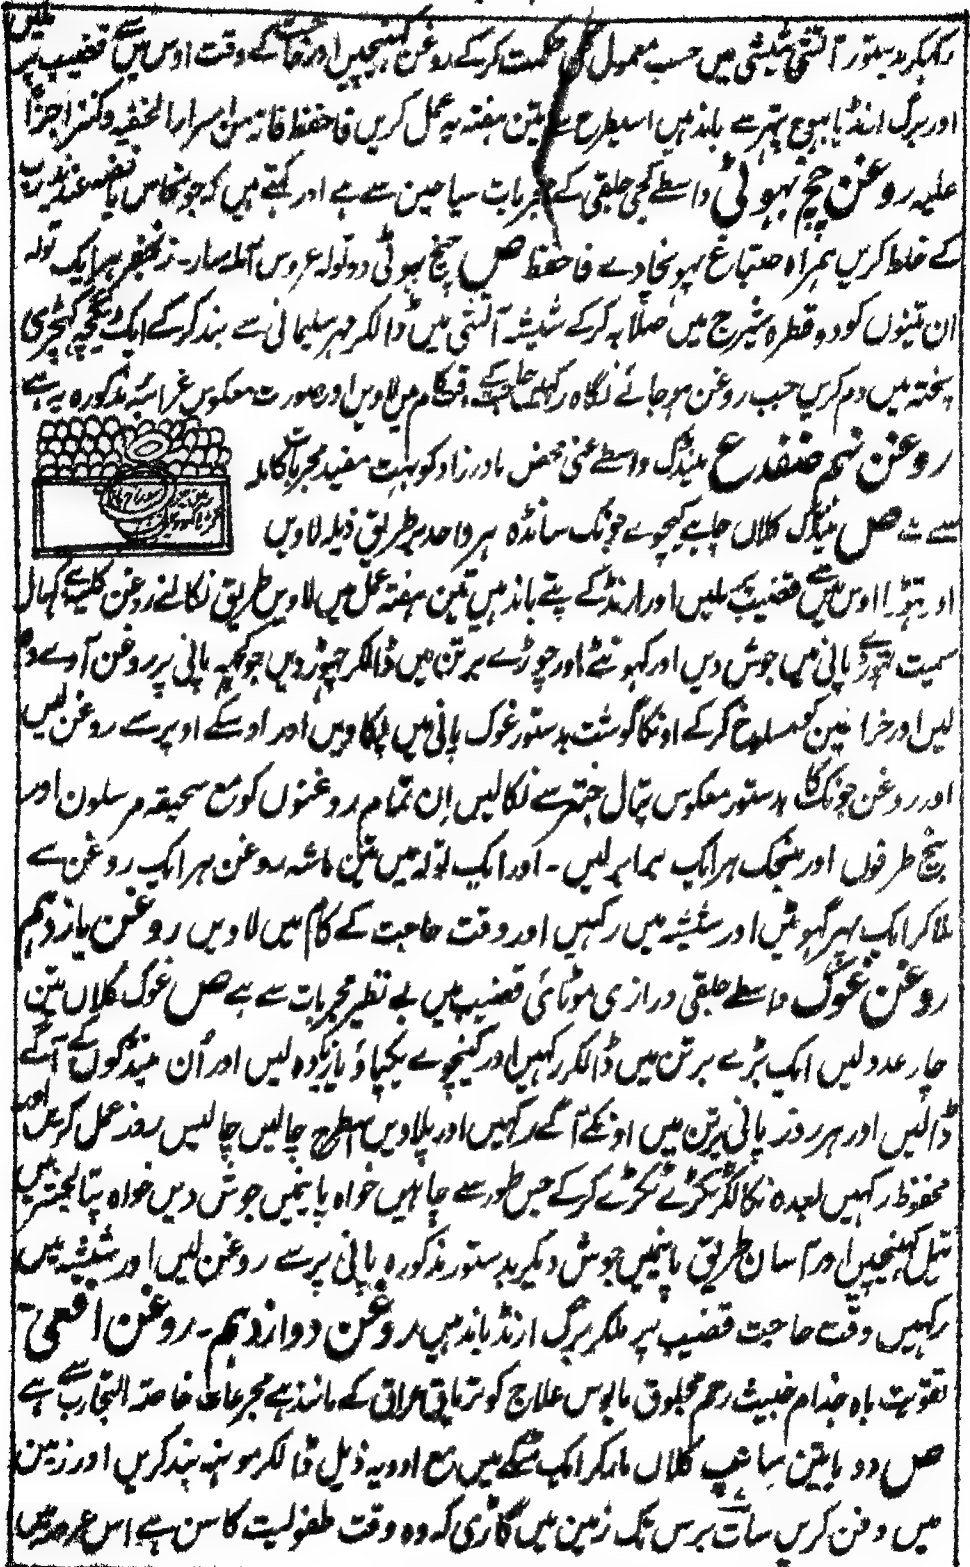 رکہکر بدستور آتشی شیشی میں حسب معمول گل حکمت کرکے روغن کھینچیں اور حاجت کے وقت اوس میں سے قضیب پر ملیں
اور برگ ارنڈ یا بھوج پتر سے باندہیں اسیطرح سے تین ہفتہ یہ عمل کریں فاحفظ فانہ من اسرار الخفیہ وکنز اجزا
علیہ روغن بیچ بہوٹی واسطے کجی جلقی کے مجربات سیاحین سے ہے اور کہتے ہیں کہ جو نخاس یا نفضہ عند
کے خلط کریں ہمراہ صباغ پہونچا دے فاحفظ ص بیچ بہوٹی دو تولہ عروس آملہ سار۔ زنجفر ہر ایک تولہ
ان تینوں کو دو قطرہ شیرج میں صلایہ کرکے شیشہ آتشی میں ڈالکر مہر سلیمانی سے بند کرکے ایک دیگچہ کھچڑی
پختہ میں دم کریں جب روغن ہوجائے نگاہ رکہیں حاجت کے وقت کام میں لاویں اور صورت معکوس غرائب مذکورہ یہ ہے
روغن نہم ضفدع مینڈک واسطے عنی نخض مادرزاد کو بہت مفید مجربات کاملہ
سے ہے ص مینڈک کلاں چاہے کیچوے جونک سانڈہ ہر واحد بطریق ذیل لاویں
اور تھوڑا اوس میں سے قضیب پر ملیں اور ارنڈ کے پتے باندہیں تین ہفتہ عمل میں لاویں طریق نکالنے روغن کلیے کہال
سمیت تھوڑے پانی میں جوش دیں اور کہونٹے اور چوڑے برتن میں ڈالکر چھوڑ دیں جو کچھ پانی پر روغن آوے وہ
لیں اور خراطین کو مسلوخ کرکے اونکا گوشت بدستور غوک پانی میں پکاویں اور اوسکے اوپر سے روغن لیں
اور روغن جونک کا بدستور معکوس پتال جنتر سے نکالیں ان تمام روغنوں کو مع سحیقہ مرسلون اور
بیخ طرفوں اور مینجک ہر ایک برابر لیں۔ اور ایک تولہ میں تین ماشہ روغن ہر ایک روغن سے
ملاکر ایک پہر گھوٹیں اور شیشہ میں رکہیں اور وقت حاجت کے کام میں لاویں روغن یازدہم
روغن غوک واسطے جلقی درازی موٹائی قضیب میں بے نظیر مجربات سے ہے ص غوک کلاں تین
چار عدد لیں ایک بڑے برتن میں ڈالکر رکہیں اور کینچوے یکپاؤ یا زیادہ لیں اور اُن مینڈکوں کے آگے
ڈالیں اور ہر روز پانی برتن میں اونکے آگے رکہیں اور پلاویں اسطرح چالیس چالیس روز عمل کریں اور
محفوظ رکہیں بعدہ نکالکر ٹکڑے ٹکڑے کرکے جس طور سے چاہیں خواہ پانیمیں جوش دیں خواہ پتال جنتر میں
تیل کھینچیں اور آسان طریق پانیمیں جوش دیکر بدستور مذکورہ پانی پر سے روغن لیں اور شیشہ میں
رکہیں وقت حاجت قضیب پر ملکر برگ ارنڈ باندہیں روغن دوازدہم۔ روغن افعی
تقویت باہ جذام خبیث رحم مجلوق مایوس علاج کو تریاق عراقی کے مانند ہے مجربات خاصۃ التجارب سے ہے
ص دو یا تین سانپ کلاں مارکر ایک مٹکے میں مع ادویہ ذیل ڈالکر مونہہ بند کریں اور زمین
میں دفن کریں سات برس تک زمین میں گاڑی کہ وہ وقت طفولیت کا سن ہے اس عرصہ میں